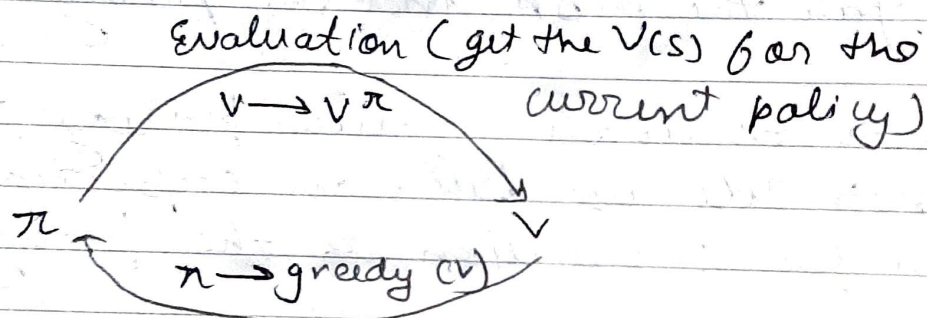 Evaluation (get the V(s) for the
V → V^π current policy)
π V
π → greedy (V)